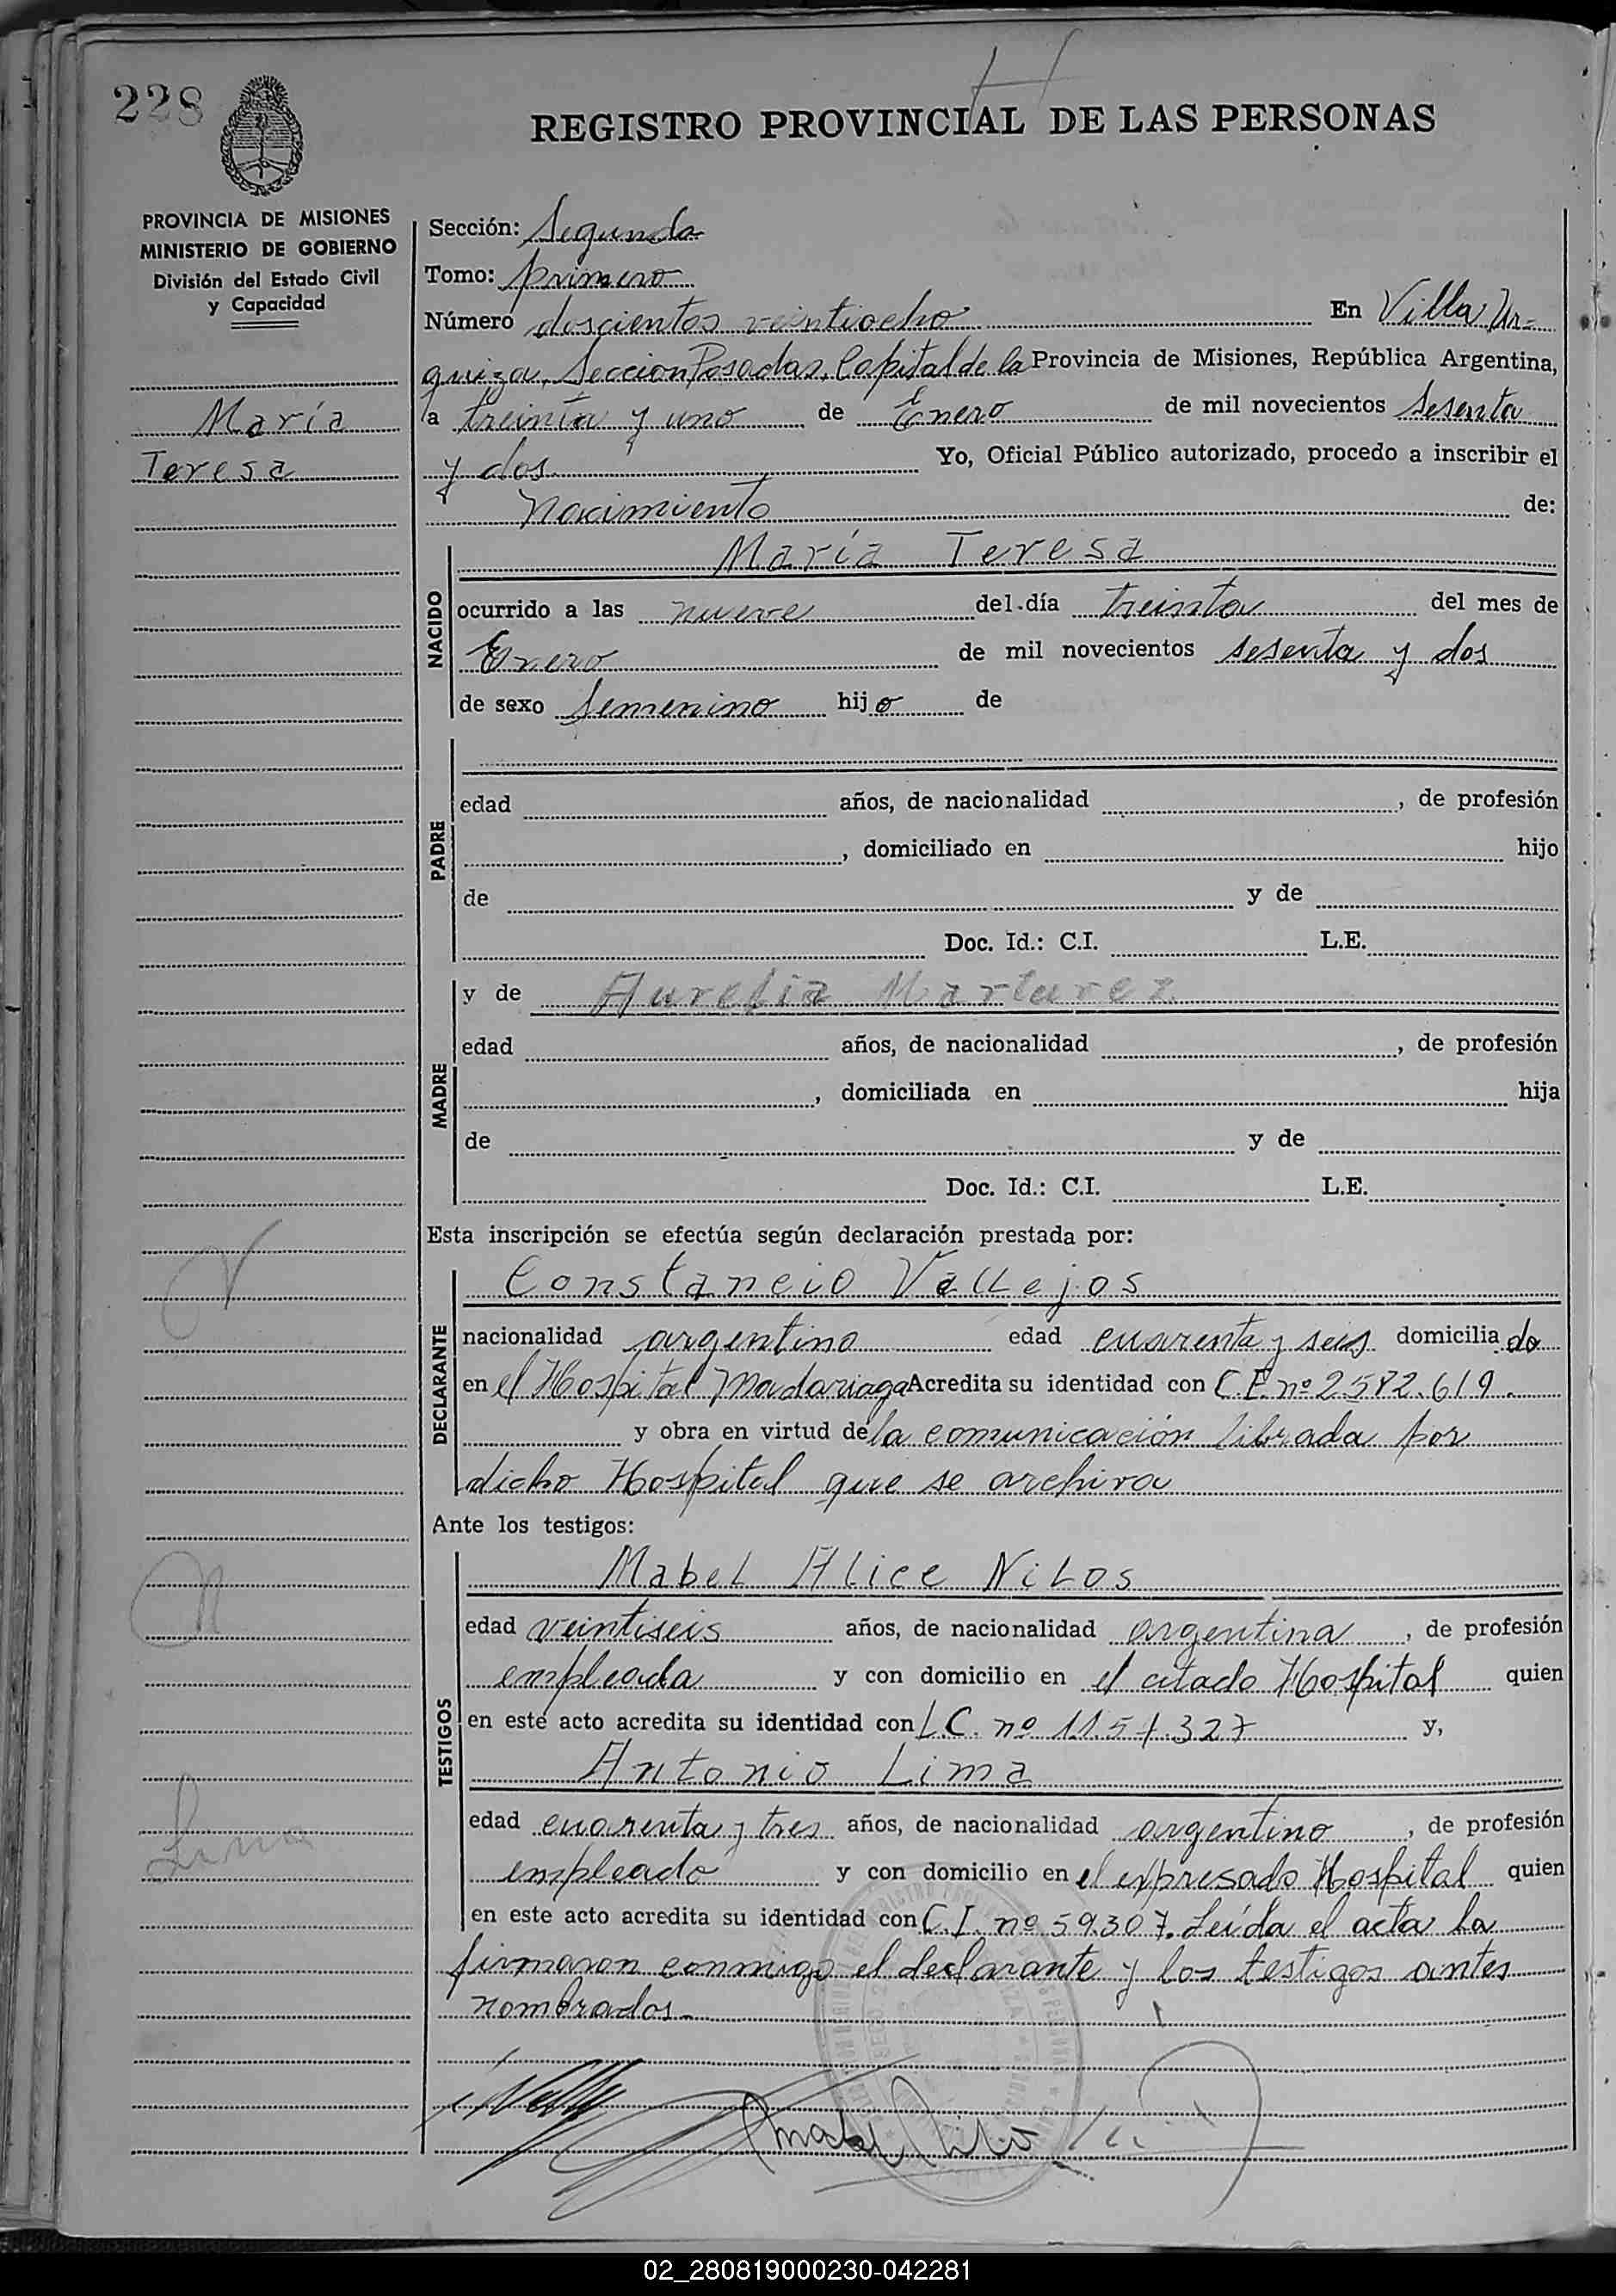 228
REGISTRO PROVINCIAL DE LAS PERSONAS
PROVINCIA DE MISIONES
MINISTERIO DE GOBIERNO
División del Estado Civil
y Capacidad
María
Teresa
Sección: Segunda
Tomo: primero
Número doscientos veintiocho En Villa Ur-
quiza, Sección Posadas, Capital de la Provincia de Misiones, República Argentina,
a treinta y uno de Enero de mil novecientos sesenta
y dos Yo, Oficial Público autorizado, procedo a inscribir el
Nacimiento de:
NACIDO
María Teresa
ocurrido a las nueve del día treinta del mes de
Enero de mil novecientos sesenta y dos
de sexo femenino hijo de
PADRE
edad años, de nacionalidad , de profesión
, domiciliado en hijo
de y de
Doc. Id.: C.I. L.E.
MADRE
y de Aurelia
edad años, de nacionalidad , de profesión
, domiciliada en hija
de y de
Doc. Id.: C.I. L.E.
Esta inscripción se efectúa según declaración prestada por:
DECLARANTE
Constancio Vallejos
nacionalidad argentino edad cuarenta y seis domiciliado
en el Hospital Madariaga Acredita su identidad con nº 2582.619.
y obra en virtud de la comunicación librada por
dicho Hospital que se archiva
Ante los testigos:
TESTIGOS
Mabel Alice Nilos
edad veintiseis años, de nacionalidad argentina, de profesión
empleada y con domicilio en el citado Hospital quien
en este acto acredita su identidad con L.C. nº y,
Antonio Lima
edad cuarenta y tres años, de nacionalidad argentino, de profesión
empleado y con domicilio en el expresado Hospital quien
en este acto acredita su identidad con C.I. nº 59.307. Leída el acta la
firmaron conmigo el declarante y los testigos antes
nombrados.-
Lima
02_280819000230-042281